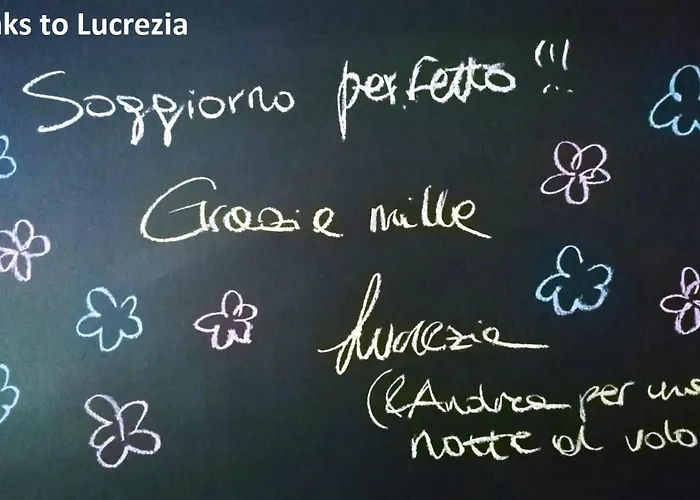 nks to Lucrezia
Soggiorno perfetto!!!
Grazie mille
Lucrezia
(& Andrea per una
notte al volo